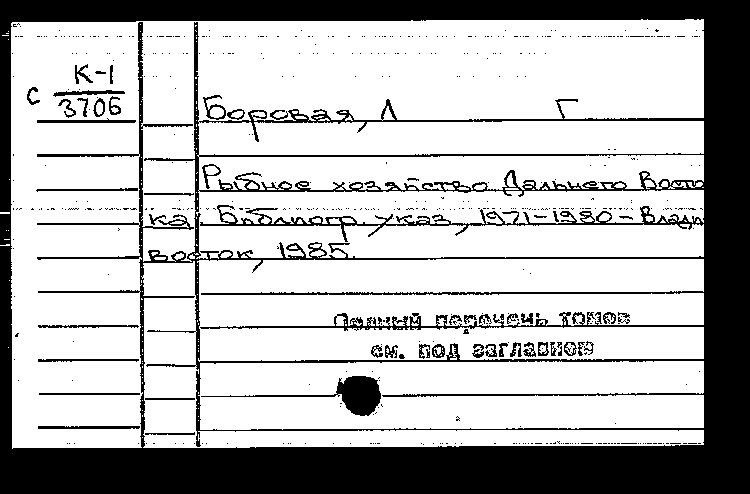 К-1
с 3706
Боровая, Л Г
Рыбное хозяйство Дальнего Восто
ка. Библиогр. указ., 1971-1980 - Влади
восток, 1985.
Полный перечень томов
см. под заглавием